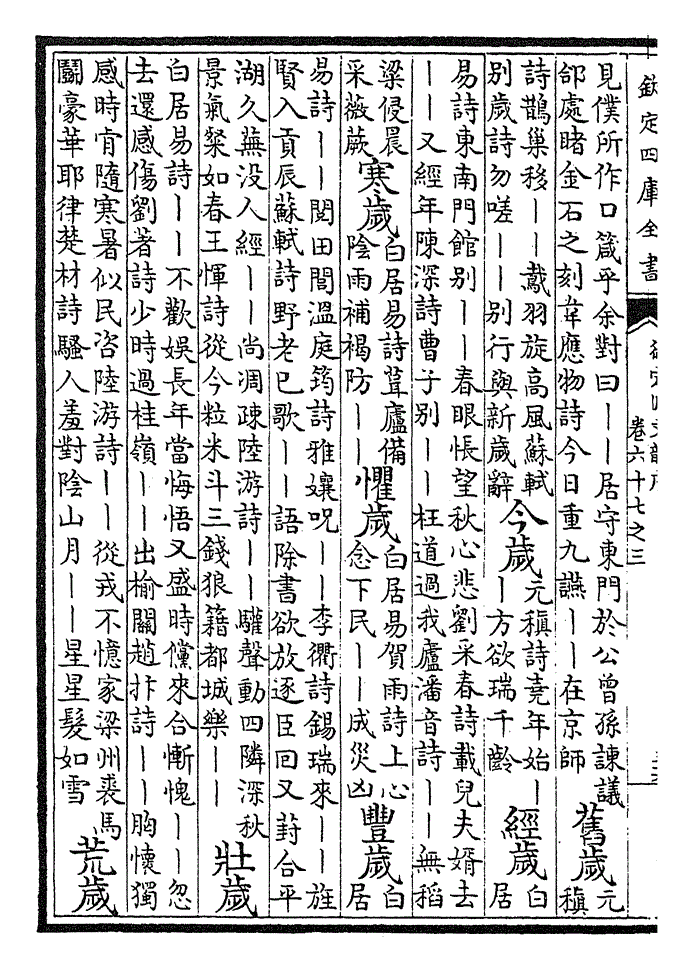 欽定四庫全書
卷六十七之三
見僕所作口箴乎余對曰丨丨居守東門於公曾孫諫議
郃處睹金石之刻韋應物詩今日重九讌丨丨在京師
舊歲
元
稹
詩鵲巢移丨丨鷰羽旋高風蘇軾
別歲詩勿嗟丨丨別行與新歲辭
今歲
元稹詩堯年始丨
丨方欲瑞千齡
經歲
白
居
易詩東南門館別丨丨春眼悵望秋心悲劉采春詩載兒夫婿去
丨丨又經年陳深詩曹子別丨丨枉道過我廬潘音詩丨丨無稻
粱侵晨
采薇蕨
寒歲
白居易詩葺廬備
陰雨補褐防丨丨
懼歲
白居易賀雨詩上心
念下民丨丨成災凶
豐歲
白
居
易詩丨丨閱田閭溫庭筠詩雅孃呪丨丨李衢詩錫瑞來丨丨旌
賢入貢辰蘇軾詩野老已歌丨丨語除書欲放逐臣回又葑合平
湖久蕪没人經丨丨尚凋疎陸游詩丨丨驩聲動四隣深秋
景氣粲如春王惲詩從今粒米斗三錢狼籍都城樂丨丨
壯歲
白居易詩丨丨不歡娛長年當悔悟又盛時儻來合慚愧丨丨忽
去還感傷劉著詩少時過桂嶺丨丨出榆關趙抃詩丨丨胸懷獨
感時宵隨寒暑似民咨陸游詩丨丨從戎不憶家梁州裘馬
鬬豪華耶律楚材詩騷人羞對陰山月丨丨星星髮如雪
荒歲